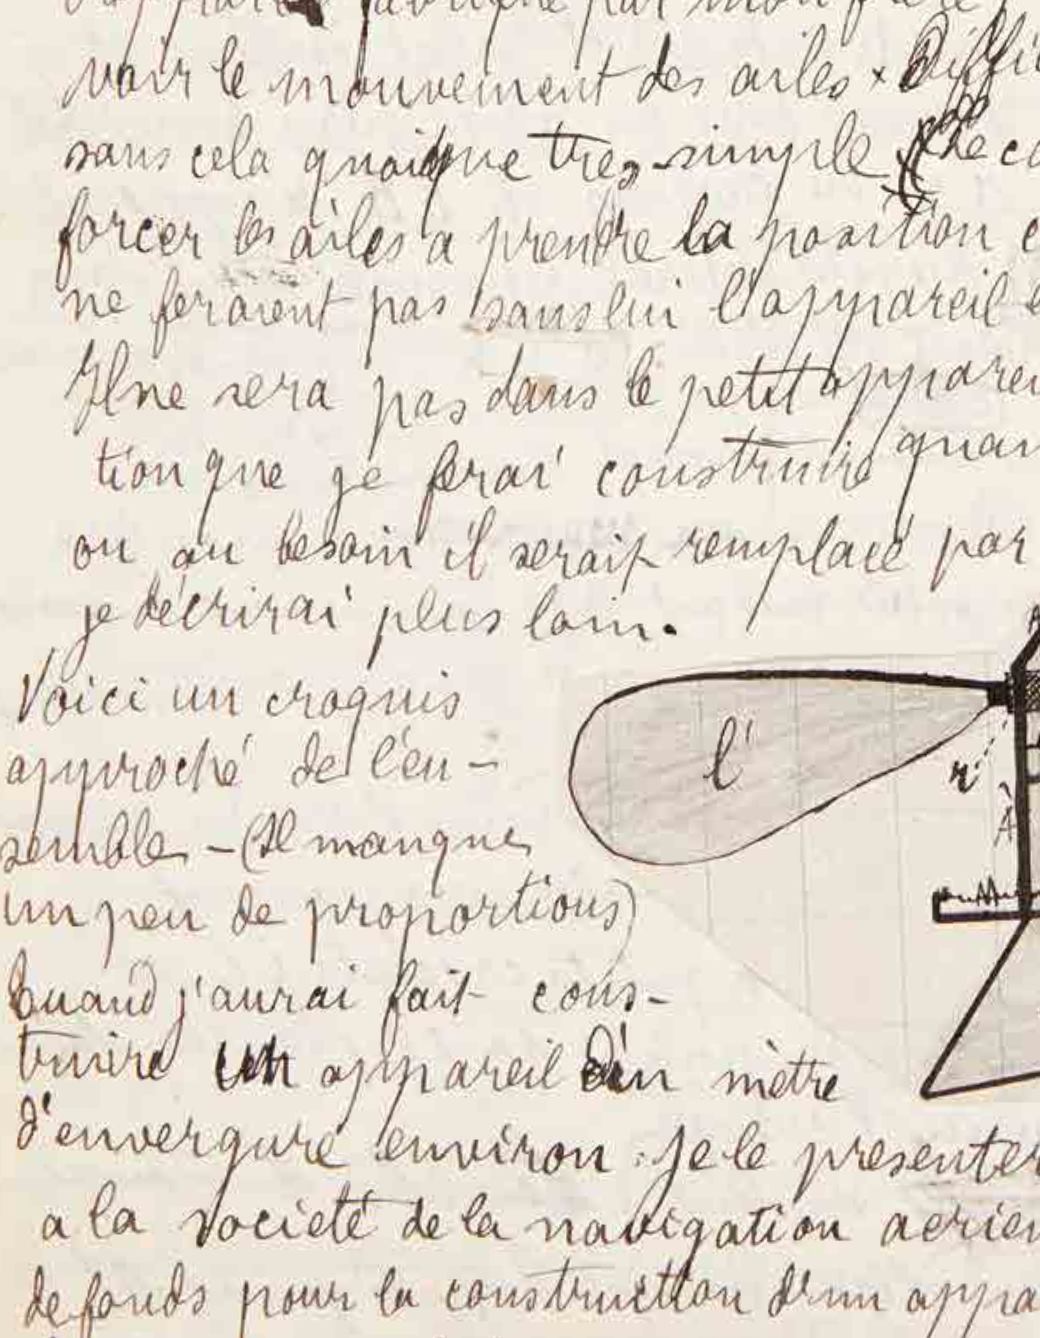 par mon frère
voir le mouvement des ailes x Diffi
sans cela quoique tres simple
forcer les ailes a prendre la position
ne feraient pas sans lui l'appareil
Il ne sera pas dans le petit apparei
tion que je ferai construire quan
ou au besoin il serait remplacé par
je décrirai plus loin.
Voici un croquis
approché de l'en-
semble - (Il manque
un peu de proportions)
Quand j'aurai fait cons-
truire un appareil d'un mètre
d'envergure environ. Je le presenter
a la Société de la navigation aerien
de fonds pour la construction d'un appa
l'
r'
A